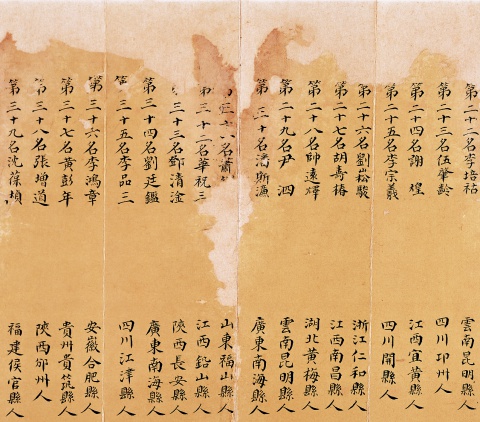 第二十二名李培祜　雲南昆明縣人
第二十三名伍肇齡　四川邛州人
第二十四名謝　煌　江西宜黃縣人
第二十五名李宗羲　四川開縣人
第二十六名劉崧駿　浙江仁和縣人
第二十七名胡壽椿　江西南昌縣人
第二十八名帥遠燡　湖北黃梅縣人
第二十九名尹　泗　雲南昆明縣人
第三十名潘斯濂　廣東南海縣人
三十一名蕭　山東福山縣人
第三十二名華祝三　江西鉛山縣人
三十三名鄭清淦　陝西長安縣人
第三十四名劉廷鑑　廣東南海縣人
第三十五名李品三　四川江津縣人
第三十六名李鴻章　安徽合肥縣人
第三十七名黃彭年　貴州貴筑縣人
第三十八名張增道　陝西邠州人
第三十九名沈葆楨　福建侯官縣人